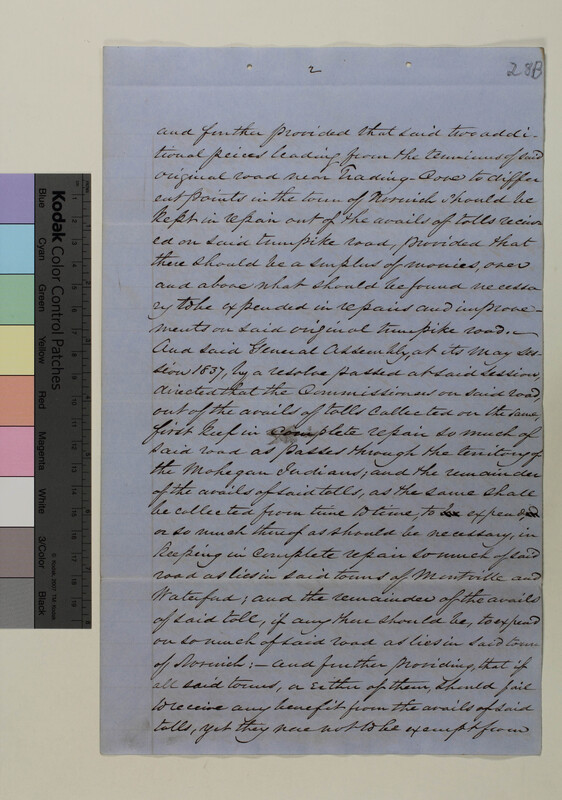 2
28B
and further provided that said two addi-
tional pieces leading from the terminus of said
original road near Trading-Cove to differ
ent points in the town of Norwich should be
kept in repair out of the avails of tolls receiv
ed on said turnpike road, provided that
there should be a surplus of monies, over
and above what should be found necessa
ry to be expended in repairs and improve-
ments on said original turnpike road.—
And said General Assembly, at its May ses-
sion 1837, by a resolve passed at said session,
directed that the Commissioners on said road,
out of the avails of tolls collected on the same
first keep in complete repair so much of
said road as passes through the territory of
the Mohegan Indians; and the remainder
of the avails of said tolls, as the same shall
be collected from time to time, to be expended
or so much thereof as should be necessary, in
keeping in complete repair so much of said
road as lies in said towns of Montville and
Waterford; and the remainder of the avails
of said toll, if any there should be, to expend
on so much of said road as lies in said town
of Norwich:— and further providing, that if
all said towns, or either of them, should fail
to receive any benefit from the avails of said
tolls, yet they were not to be exempt from
Kodak Color Control Patches
Blue
Cyan
Green
Yellow
Red
Magenta
White
3/Color
Black